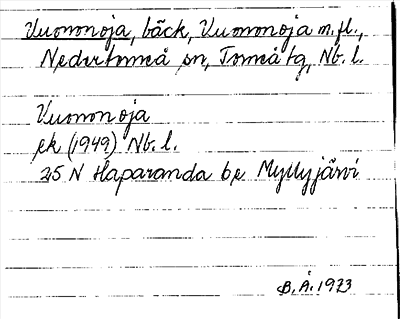 Vuomonoja, bäck, Vuomonoja m.fl.,
Nedertorneå sn, Torneå tg, Nb. l.
Vuomonoja
ek (1949) Nb. l.
25 N Haparanda be Myllyjärvi
B.Å. 1973